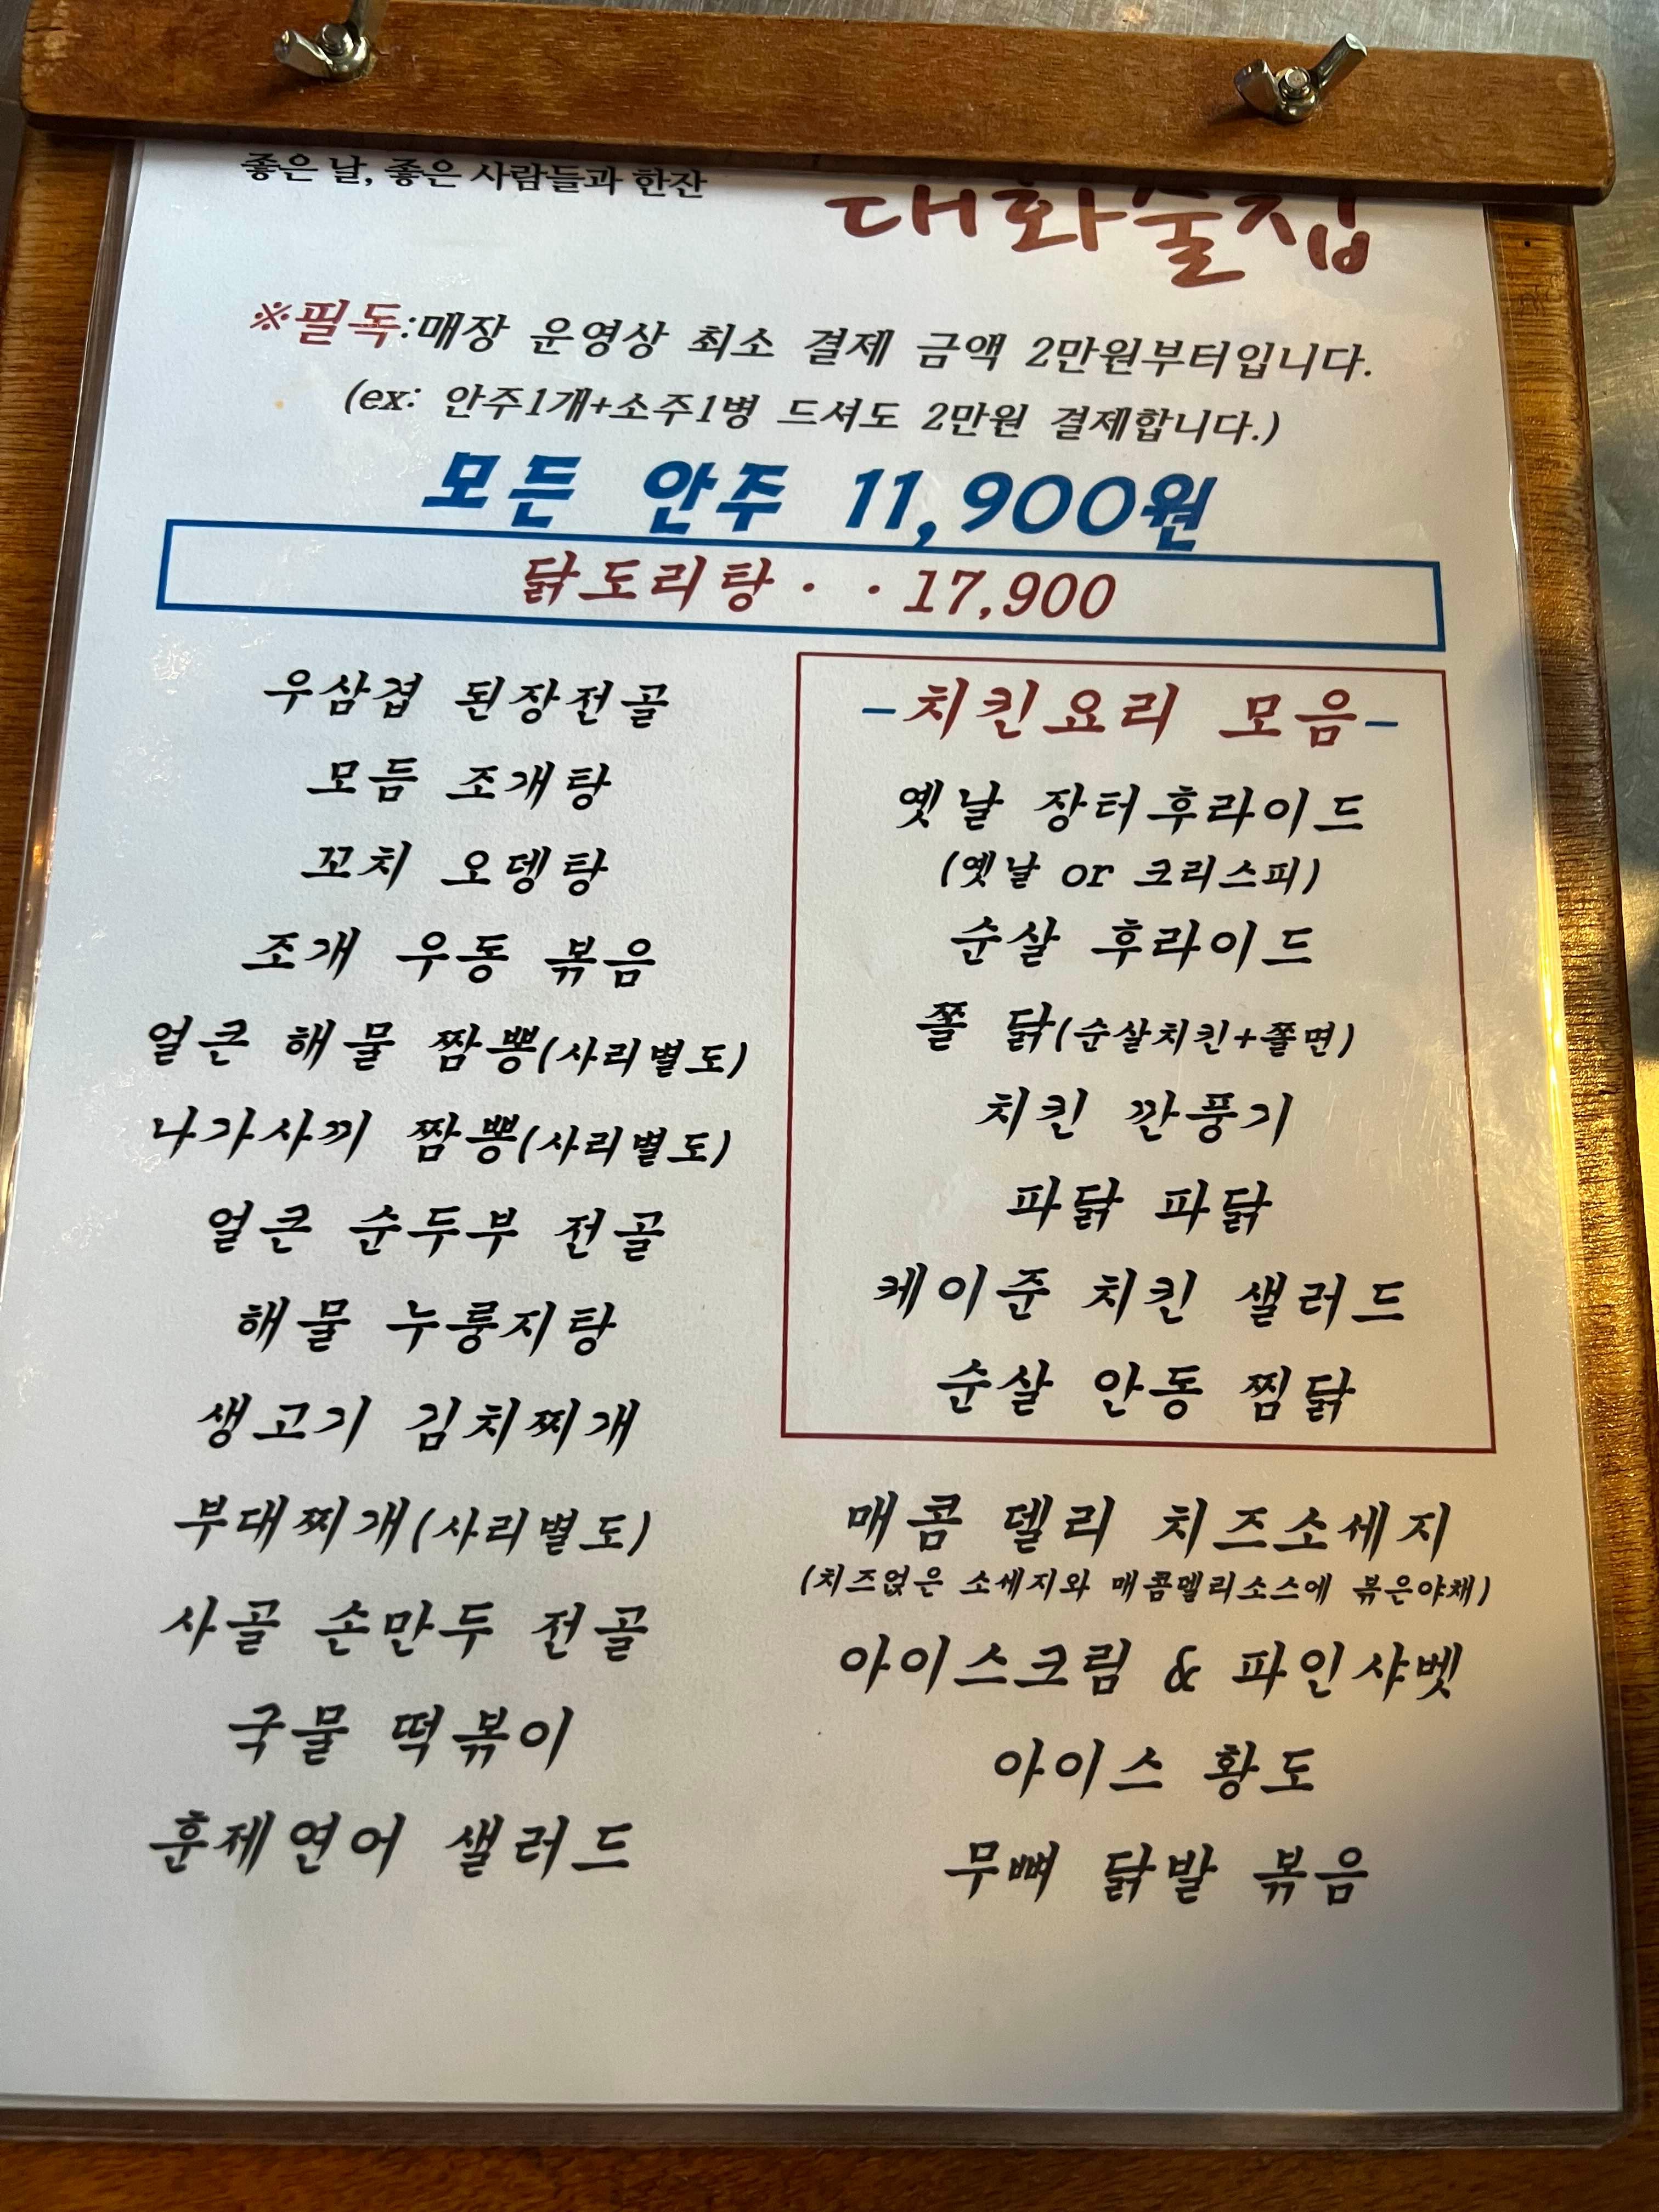 좋은 날, 좋은 사람들과 한잔
대화술집
※필독:매장 운영상 최소 결제 금액 2만원부터입니다.
(ex: 안주1개+소주1병 드셔도 2만원 결제합니다.)
모든 안주 11,900원
닭도리탕· ·17,900
우삼겹 된장전골
모듬 조개탕
꼬치 오뎅탕
조개 우동 볶음
얼큰 해물 짬뽕(사리별도)
나가사끼 짬뽕(사리별도)
얼큰 순두부 전골
해물 누룽지탕
생고기 김치찌개
부대찌개(사리별도)
사골 손만두 전골
국물 떡볶이
훈제연어 샐러드
-치킨요리 모음-
옛날 장터후라이드
(옛날 or 크리스피)
순살 후라이드
쫄 닭(순살치킨+쫄면)
치킨 깐풍기
파닭 파닭
케이준 치킨 샐러드
순살 안동 찜닭
매콤 델리 치즈소세지
(치즈얹은 소세지와 매콤델리소스에 볶은야채)
아이스크림 & 파인샤벳
아이스 황도
무뼈 닭발 볶음